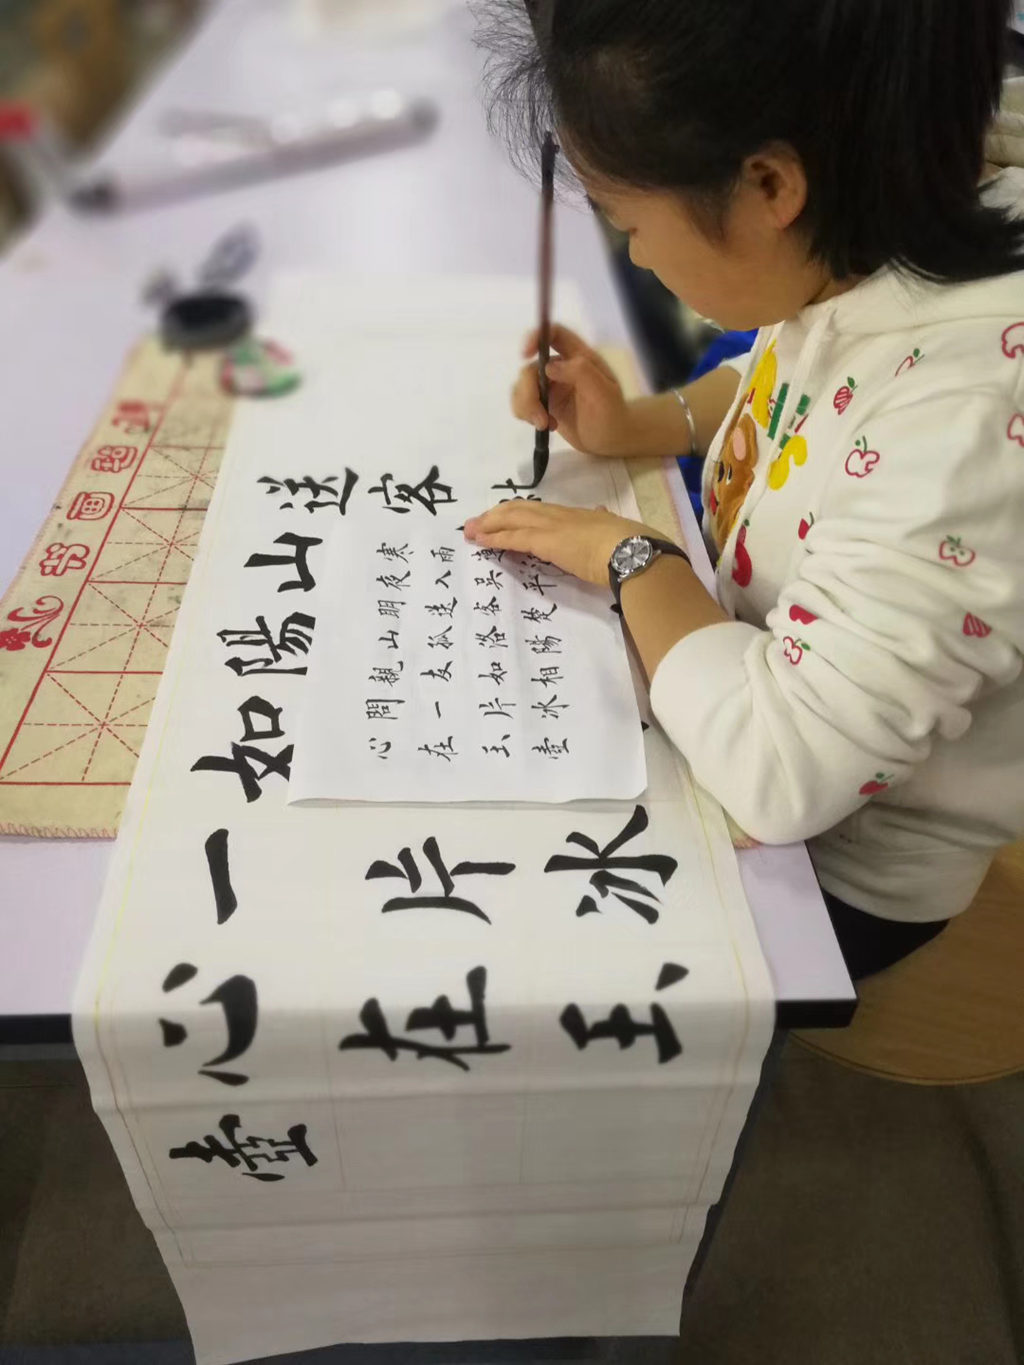 送客
山
陽
如
一片冰
心在玉
壺
寒雨連
夜入吳平
明送客楚
山孤洛陽
親友如相
問一片冰
心在玉壺
書畫超